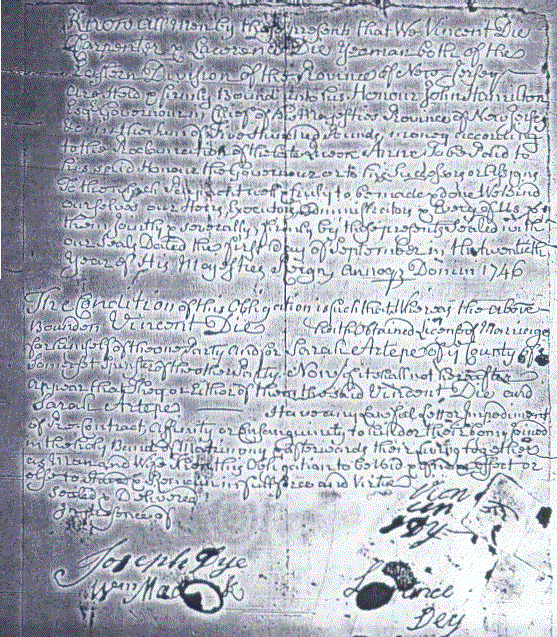 Know all men by these presents that We Vincent Die
Carpenter & Die Yeoman both of the
Western Division of the Province of New Jersey
are Hold & firmly Bound unto his Honour John Hamilton
Esqr Governour in Chief of his Majesties Province of New Jersey
in the sum of Five thousand pounds money according
to the Act of the late Queen Anne To be paid to
his said Honour the Governour or to his Successors or Assigns
To the which payment well & truly to be made and done We bind
our selves our Heirs Executors Administrators & Every of Us
them Jointly & severally firmly by these presents sealed with
our Seals Dated the first day of September in the twentieth
Year of His Majesties Reign Annoq Domini 1746
The Condition of this Obligation is such that Whereas the above
Bounden Vincent Die hath Obtained Licence of Marriage
for himself of the one Party and for Sarah Artepe of ye County of
Somerset Spinster of the other Party Now if it shall not hereafter
appear that they or Either of them the said Vincent Die and
Sarah Artepe Have any Lawful Lett or Impediment
of Pre Contract Affinity or Consanguinity to hinder their being Joined
in the holy Bands of Matrimony & afterwards their living together
as Man and Wife then this Obligation to be Void & of none Effect or
else to stand & Remain in full force and Virtue
Sealed & Delivered
In presence of
Vin
cun
Dy
Joseph Dye
Wm
Dey